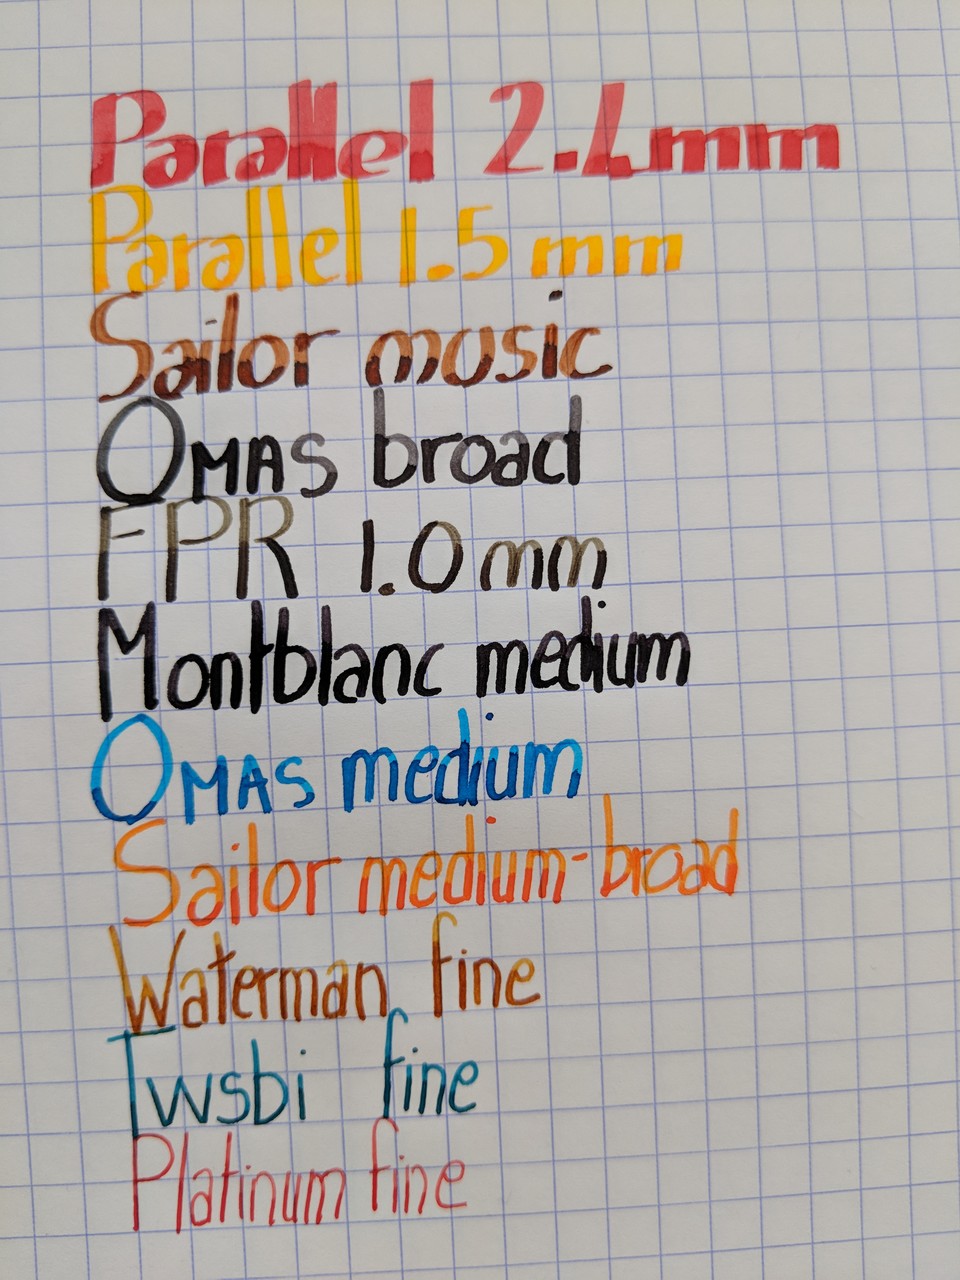 Parallel 2.4mm
Parallel 1.5mm
Sailor music
OMAS broad
FPR 1.0mm
Montblanc medium
OMAS medium
Sailor medium-broad
Waterman fine
Twsbi fine
Platinum fine